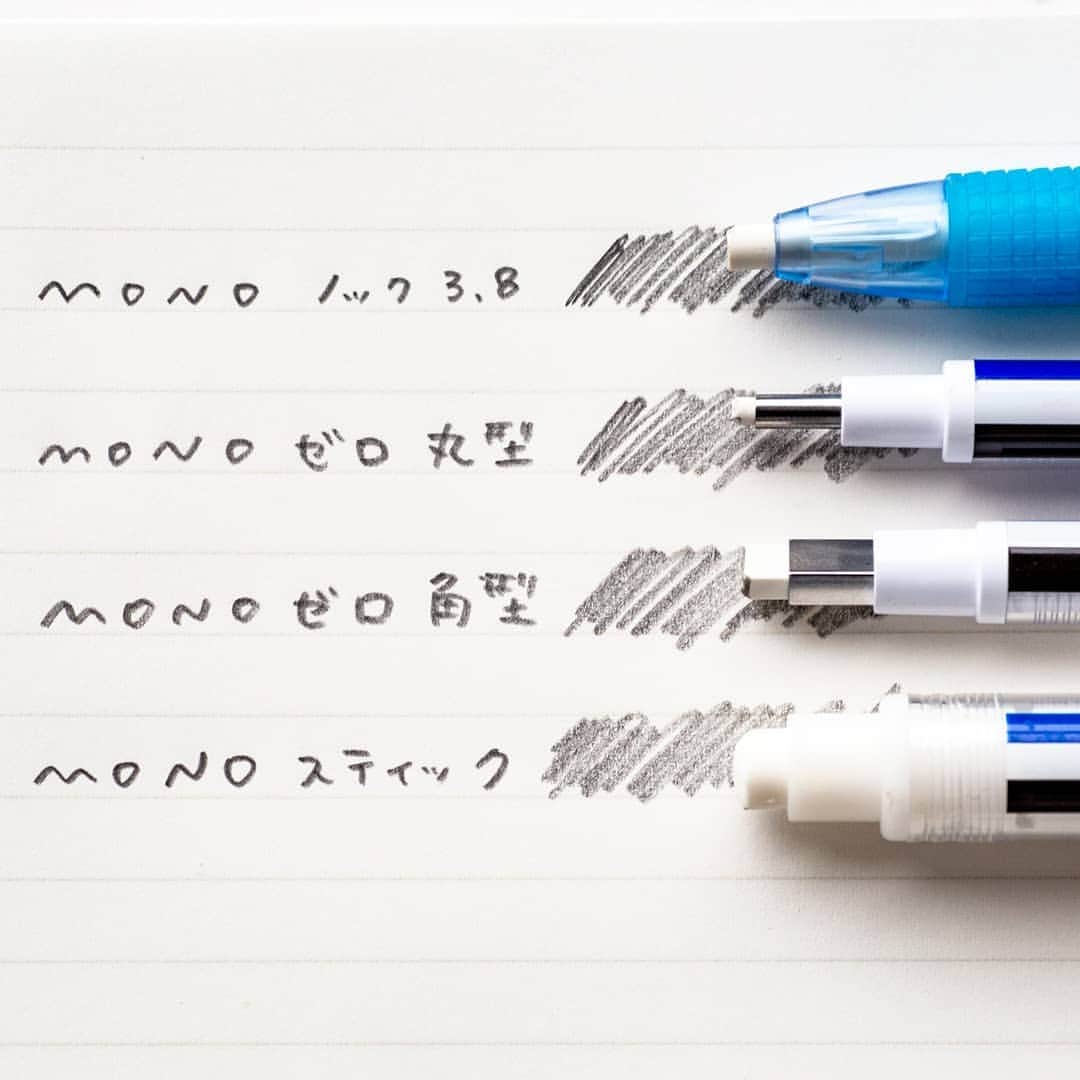 MONO ノック 3.8
MONO ゼロ 丸型
MONO ゼロ 角型
MONO スティック